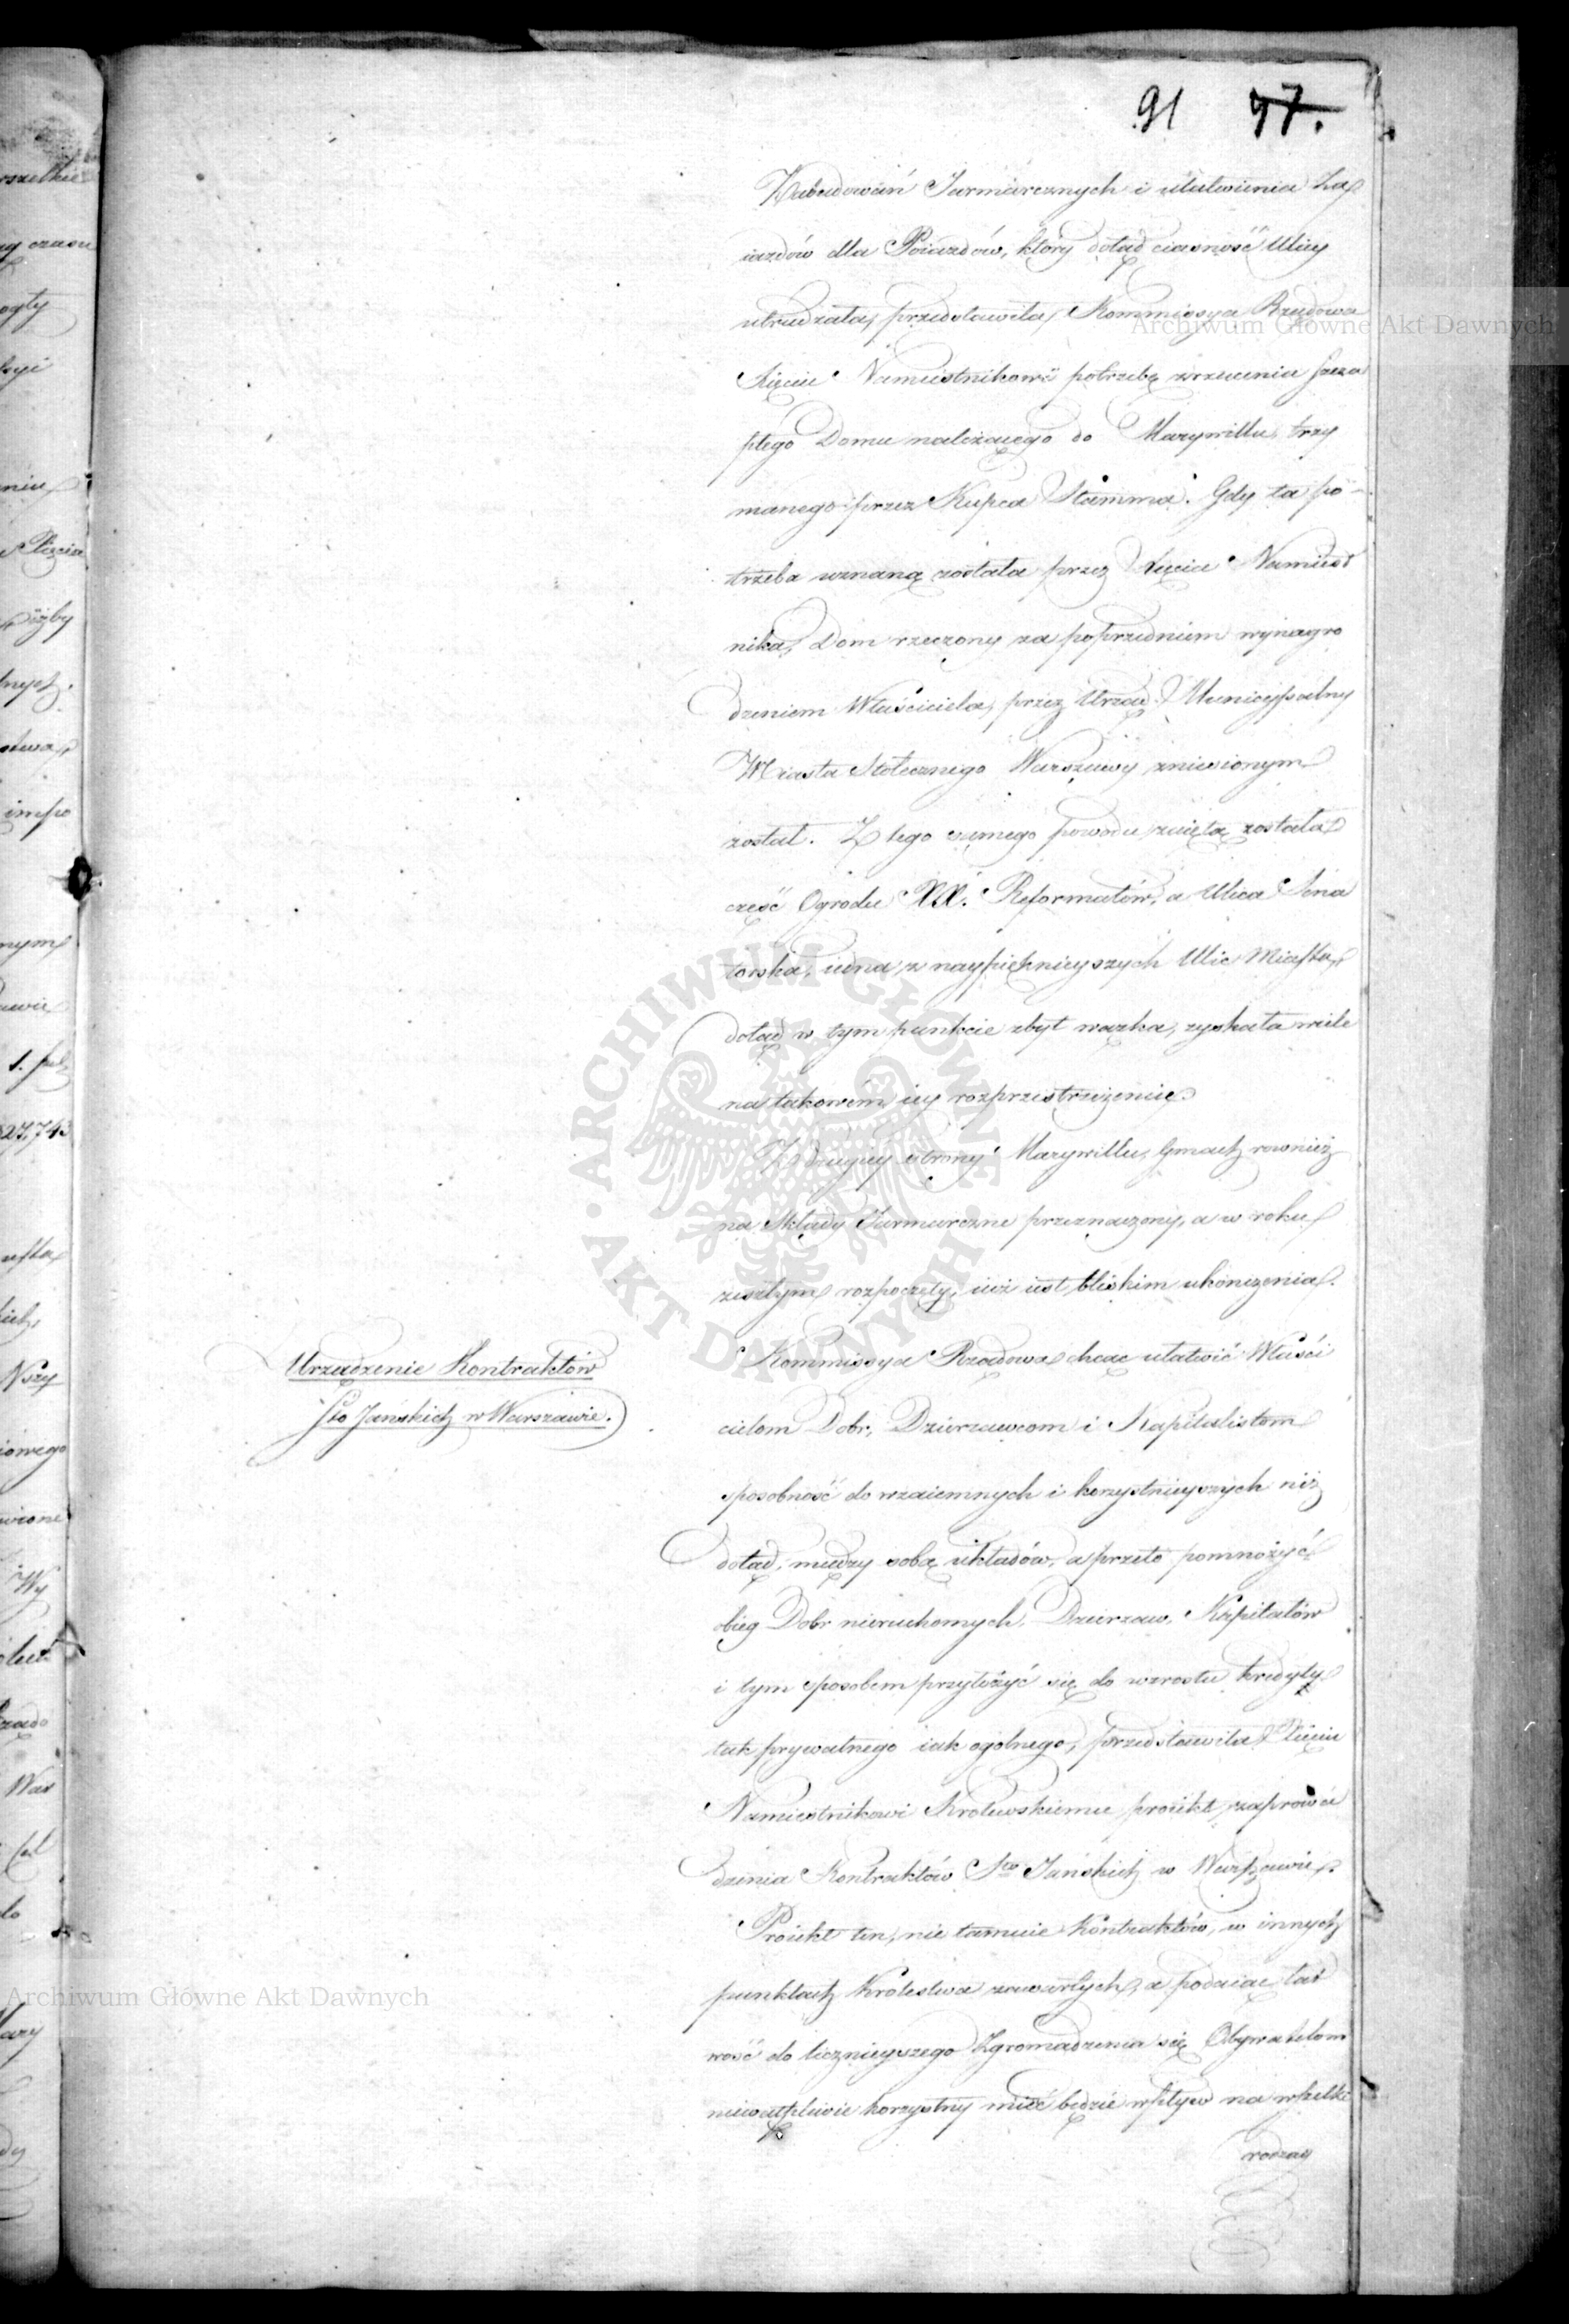 91 47.
Zabudowań Jarmarcznych i ułatwienia Za
iazdów dla Poiazdów, który dotąd ciasność Ulicy
utrudzała, przedstawiła Kommissya Rządowa
Xięciu Namiestnikowi potrzebę zrzucenia szczu
płego Domu należącego do Marywillu, trzy
manego przez Kupca Stamma. Gdy ta po-
trzeba uznaną została przez Xięcia Namiest
nika, Dom rzeczony za poprzedniem wynagro
dzeniem Właściciela, przez Urząd Municypalny
Miasta Stołecznego Warszawy zniesionym
został. Z tego samego powodu zajętą została
część Ogrodu XX. Reformatów, a Ulica Sena
torska, iedna z naypięknieyszych Ulic Miasta,
dotąd w tym punkcie zbyt wązka, zyskała wiele
na takowém iey rozprzestrzenieniu.
Z drugiey strony Marywillu, Gmach rownież
na Składy Jarmarczne przeznaczony, a w roku
zeszłym rozpoczęty, iuż iest bliskim ukończenia.
Urządzenie Kontraktów
Sto Jańskich w Warszawie.
Kommissya Rządowa chcąc ułatwić Właści
cielom Dobr, Dzierzawcom i Kapitalistom
sposobność do wzaiemnych i korzystnieyszych niż
dotąd, między sobą układów, a przeto pomnożyć
obieg Dobr nieruchomych, Dzierzaw, Kapitałów
i tym sposobem przyłożyć się do wzrostu kredytu
tak prywatnego iak ogolnego, przedstawiła Xięciu
Namiestnikowi Krolewskiemu proiekt zaprowa
dzenia Kontraktów Sto Jańskich w Warszawie.
Proiekt ten, nie tamuie Kontraktów, w innych
punktach Krolestwa zawartych, a podaiąc łat
wość do licznieyszego Zgromadzenia się Obywatelom
niewątpliwie korzystny mieć będzie wpływ na wszelki
rodzay
Archiwum Główne Akt Dawnych
ARCHIWUM GŁÓWNE AKT DAWNYCH
Archiwum Główne Akt Dawnych